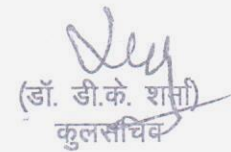 (डॉ. डी.के. शर्मा)
कुलसचिव